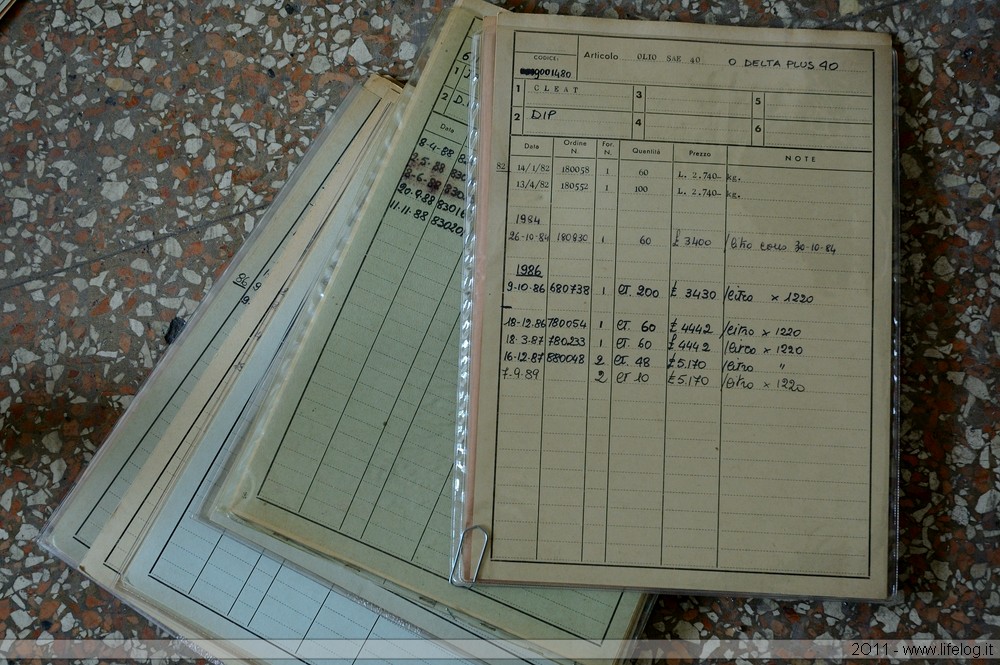 CODICE: Articolo OLIO SAE 40 O DELTA PLUS 40
9001480
1 CLEAT 3 5
2 DIP 4 6
Data Ordine N. For. N. Quantità Prezzo NOTE
82 14/1/82 180058 1 60 L. 2.740- kg.
13/4/82 180552 1 100 L. 2.740- kg.
1984
26-10-84 180830 1 60 £ 3400 /litro 30-10-84
1986
9-10-86 680738 1 LT. 200 £ 3430 /litro x 1220
18-12-86 780054 1 LT. 60 £ 4442 /litro x 1220
18-3-87 780233 1 LT. 60 £ 4442 /litro x 1220
16-12-87 880048 2 LT. 48 £ 5.170 /litro "
7-9-89 2 LT 10 £ 5.170 /litro x 1220
6
1
2 D
Data
8-4-88 830
2-5-88 830
3-6-88 830
20-9-88 83016
11-11-88 83020
86
2011 - www.lifelog.it